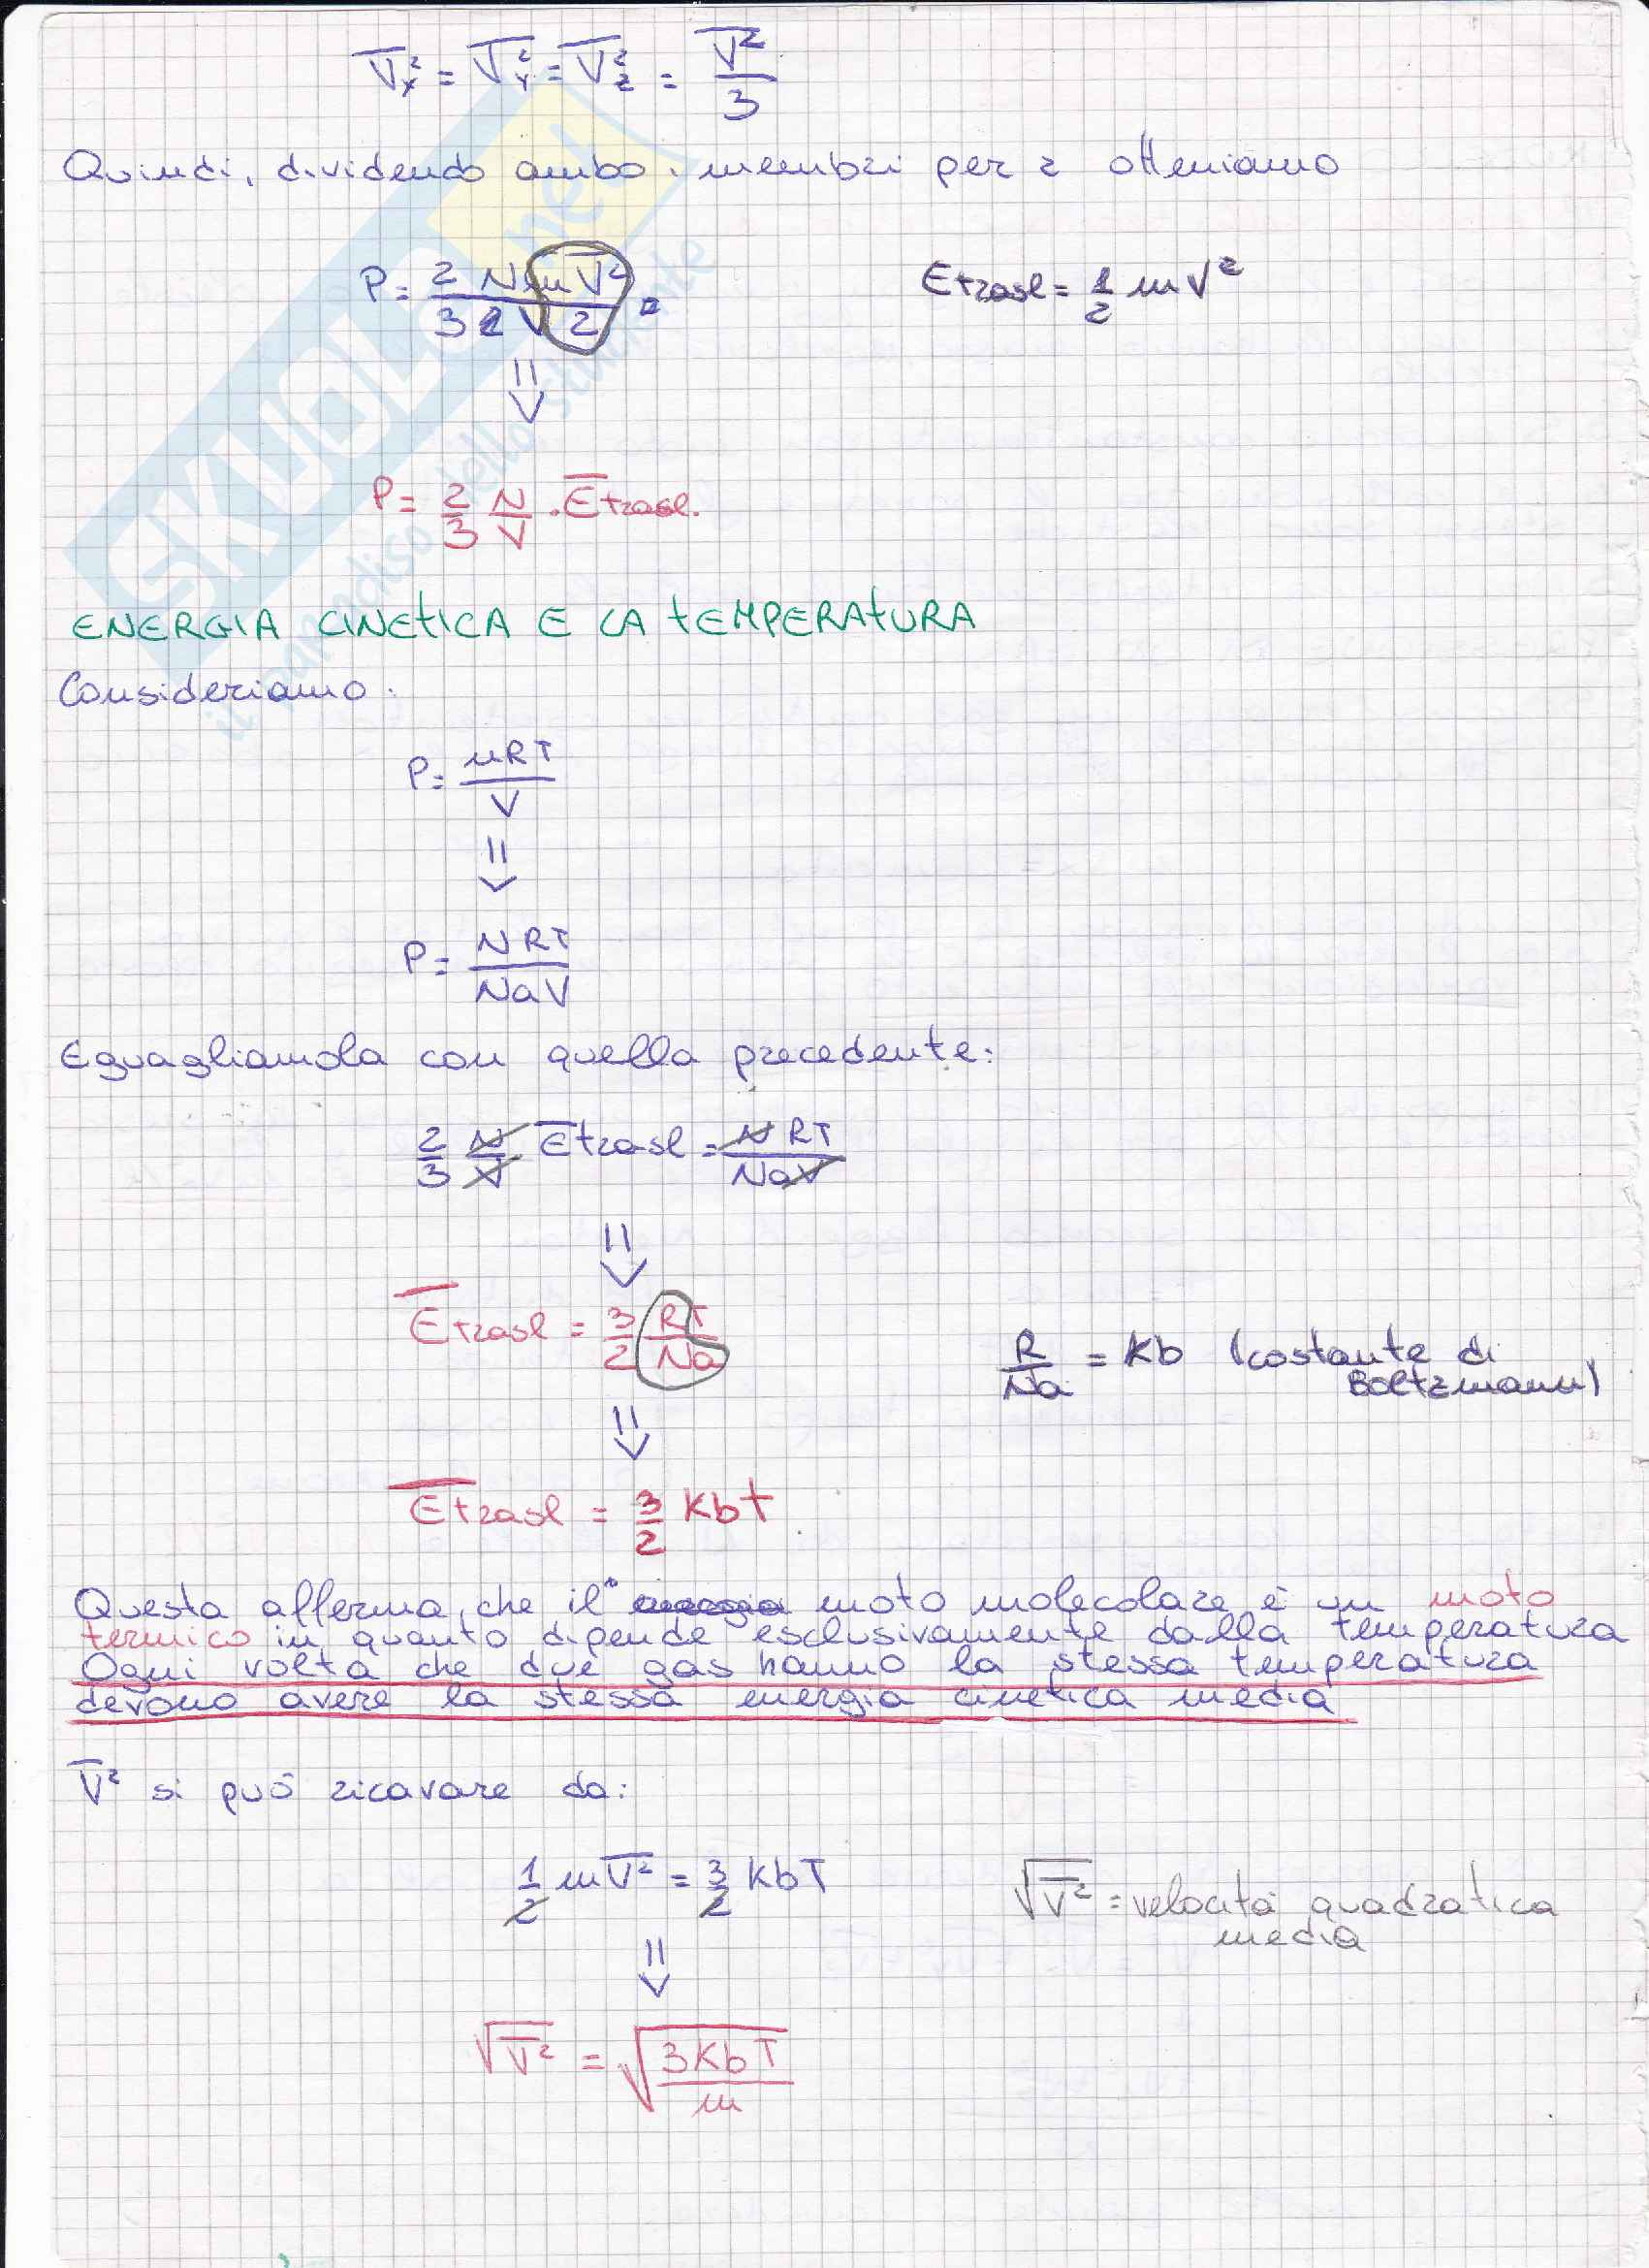 V̅x² = V̅y² = V̅z² = V̅²/3
Quindi, dividendo ambo i membri per 2 otteniamo
P = 2 N m V̅² / 3 V 2
Etrasl = 1/2 m V²
⇓
P = 2/3 N/V · E̅trasl.
ENERGIA CINETICA E LA TEMPERATURA
Consideriamo:
P = nRT/V
⇓
P = NRT/NaV
Eguagliamola con quella precedente:
2/3 N/V E̅trasl = NRT/NaV
⇓
E̅trasl = 3/2 RT/Na
R/Na = Kb (costante di
Boltzmann)
⇓
E̅trasl = 3/2 KbT
Questa afferma che il moto molecolare è un moto
termico in quanto dipende esclusivamente dalla temperatura
Ogni volta che due gas hanno la stessa temperatura
devono avere la stessa energia cinetica media
V̅² si può ricavare da:
1/2 m V̅² = 3/2 KbT
√V̅² = velocità quadratica
media
⇓
√V̅² = √(3KbT/m)
SKUOLA.net
il paradiso dello studente